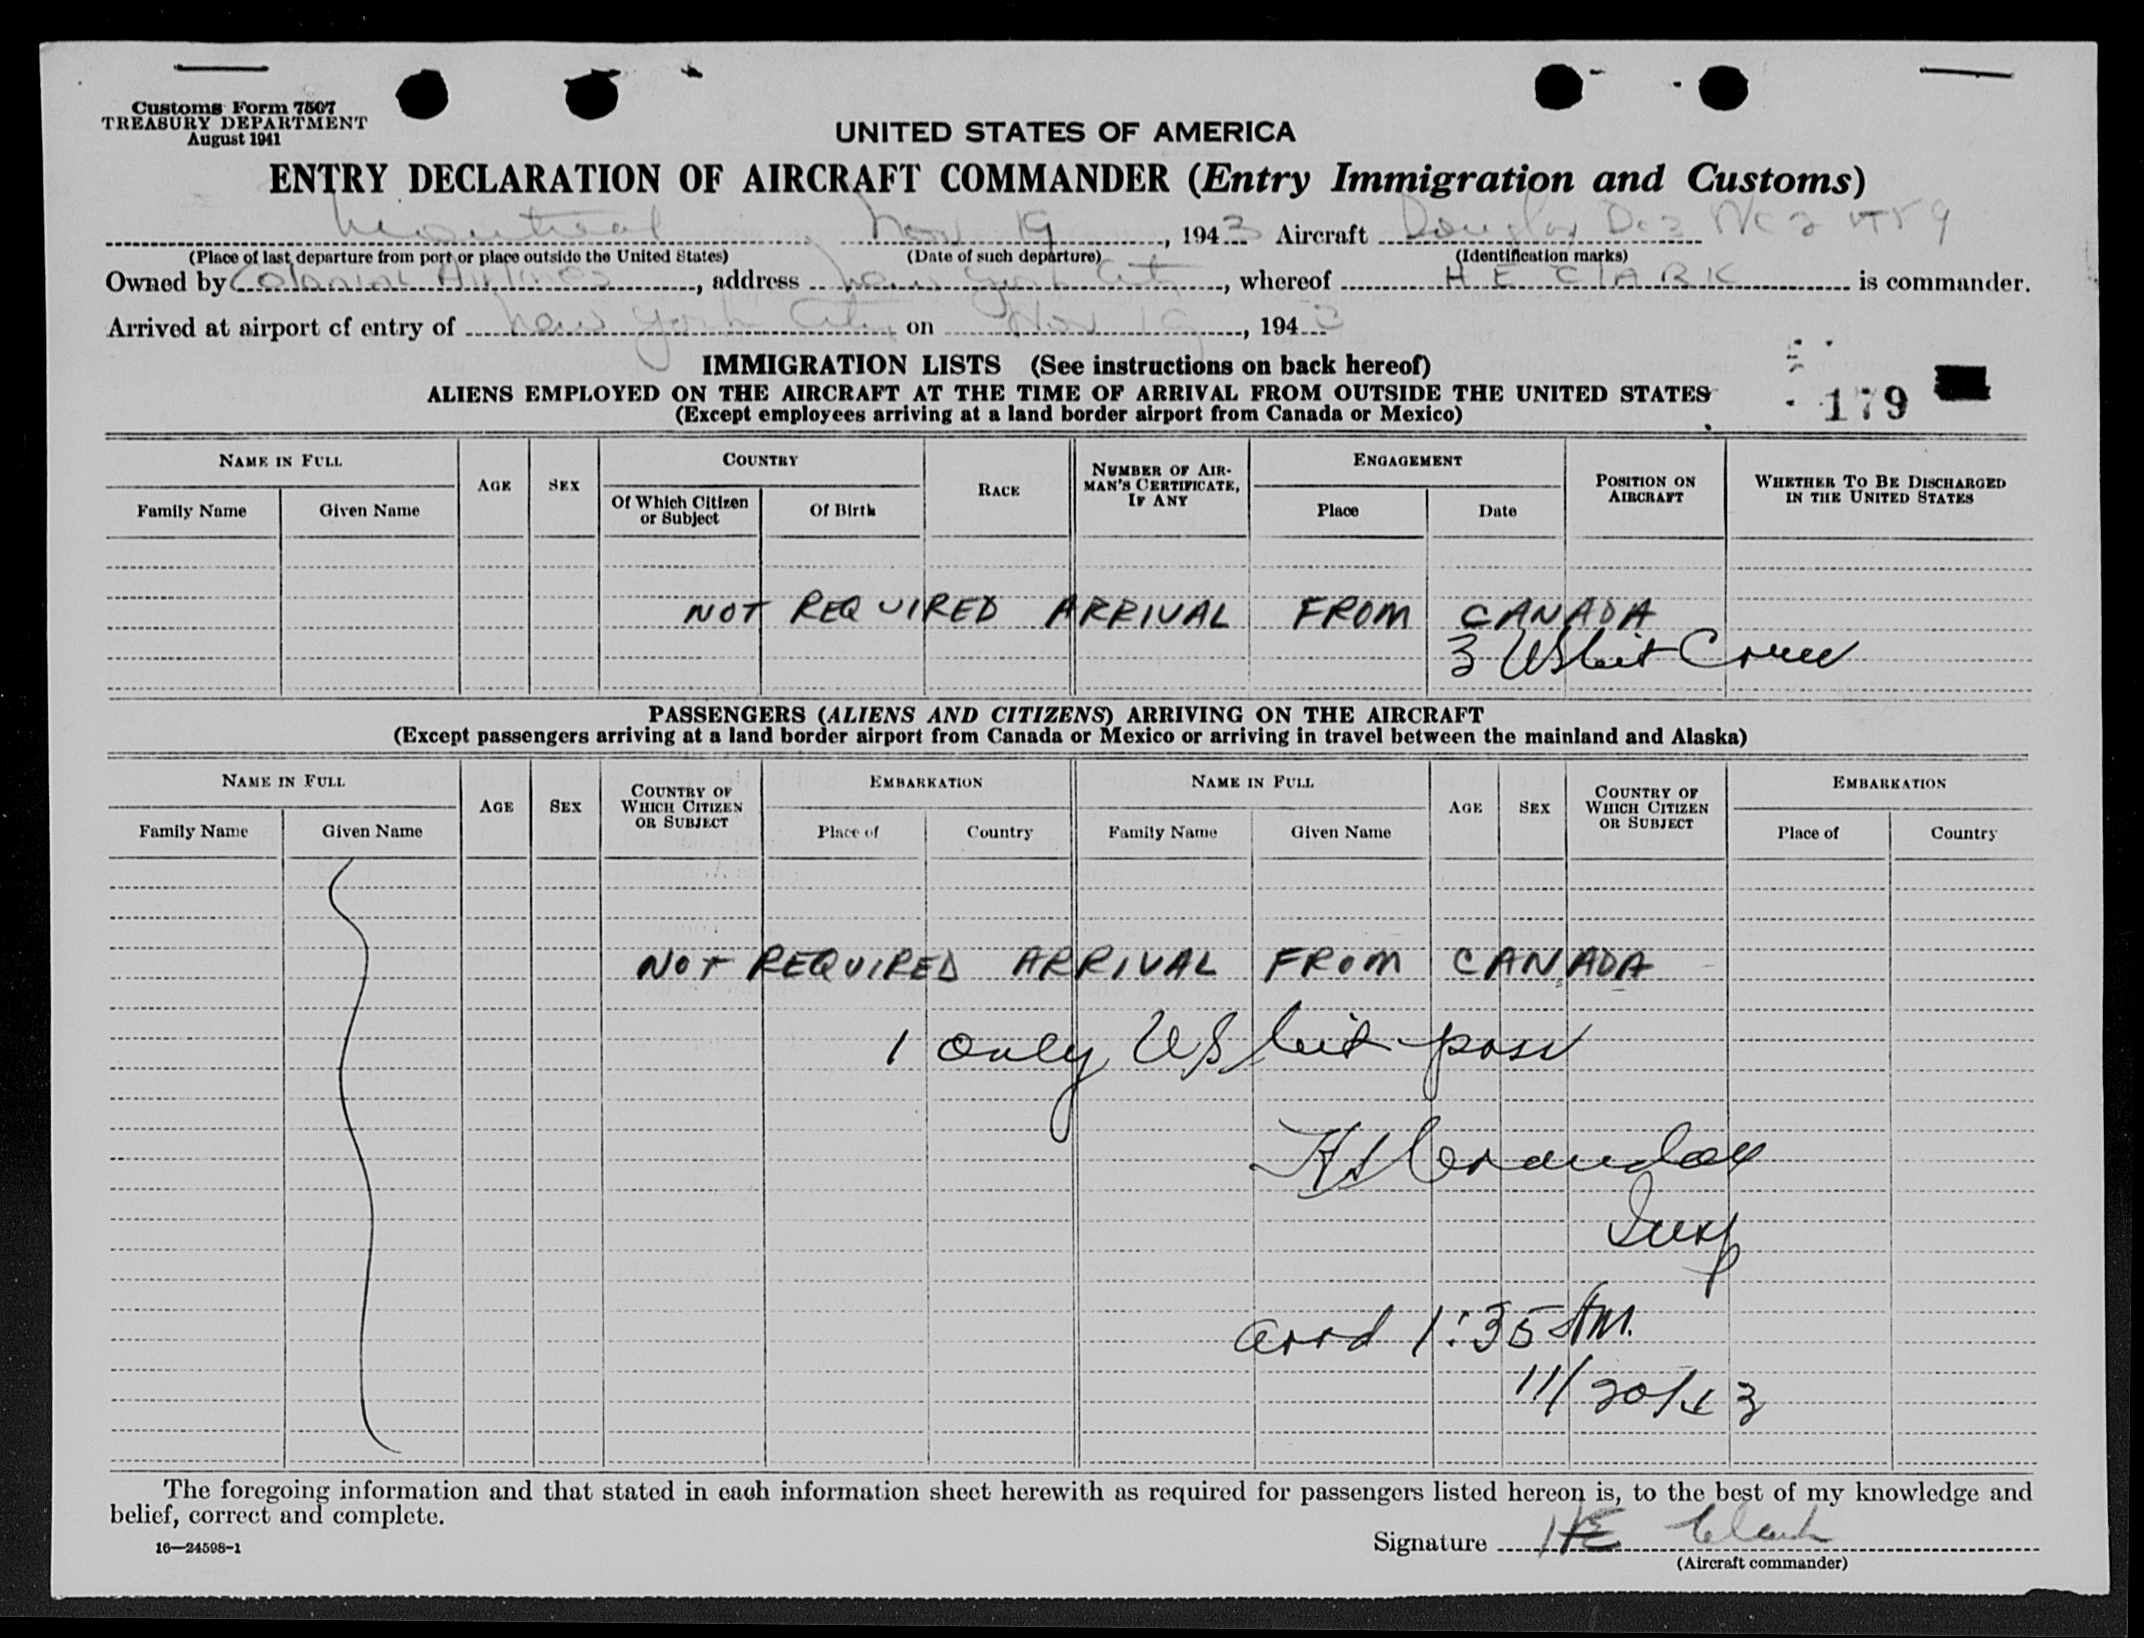 Customs Form 7507
TREASURY DEPARTMENT
August 1941
UNITED STATES OF AMERICA
ENTRY DECLARATION OF AIRCRAFT COMMANDER (Entry Immigration and Customs)
Montreal, Nov 19, 1943 Aircraft Douglas Dc3 NC2
(Place of last departure from port or place outside the United States) (Date of such departure) (Identification marks)
Owned by Colonial Airlines, address New York City, whereof H E CLARK is commander.
Arrived at airport of entry of New York City on Nov 19, 1943
IMMIGRATION LISTS (See instructions on back hereof)
ALIENS EMPLOYED ON THE AIRCRAFT AT THE TIME OF ARRIVAL FROM OUTSIDE THE UNITED STATES
179
(Except employees arriving at a land border airport from Canada or Mexico)
NAME IN FULL AGE SEX COUNTRY RACE NUMBER OF AIRMAN'S CERTIFICATE, IF ANY ENGAGEMENT POSITION ON AIRCRAFT WHETHER TO BE DISCHARGED IN THE UNITED STATES
Family Name Given Name Of Which Citizen or Subject Of Birth Place Date
NOT REQUIRED ARRIVAL FROM CANADA
3 US Cit Crew
PASSENGERS (ALIENS AND CITIZENS) ARRIVING ON THE AIRCRAFT
(Except passengers arriving at a land border airport from Canada or Mexico or arriving in travel between the mainland and Alaska)
NAME IN FULL AGE SEX COUNTRY OF WHICH CITIZEN OR SUBJECT EMBARKATION NAME IN FULL AGE SEX COUNTRY OF WHICH CITIZEN OR SUBJECT EMBARKATION
Family Name Given Name Place of Country Family Name Given Name Place of Country
NOT REQUIRED ARRIVAL FROM CANADA
1 only US Cit pass
Crandall
Insp
arrd 1:35 AM.
11/20/43
The foregoing information and that stated in each information sheet herewith as required for passengers listed hereon is, to the best of my knowledge and
belief, correct and complete.
Signature HE Clark
16—24598-1
(Aircraft commander)